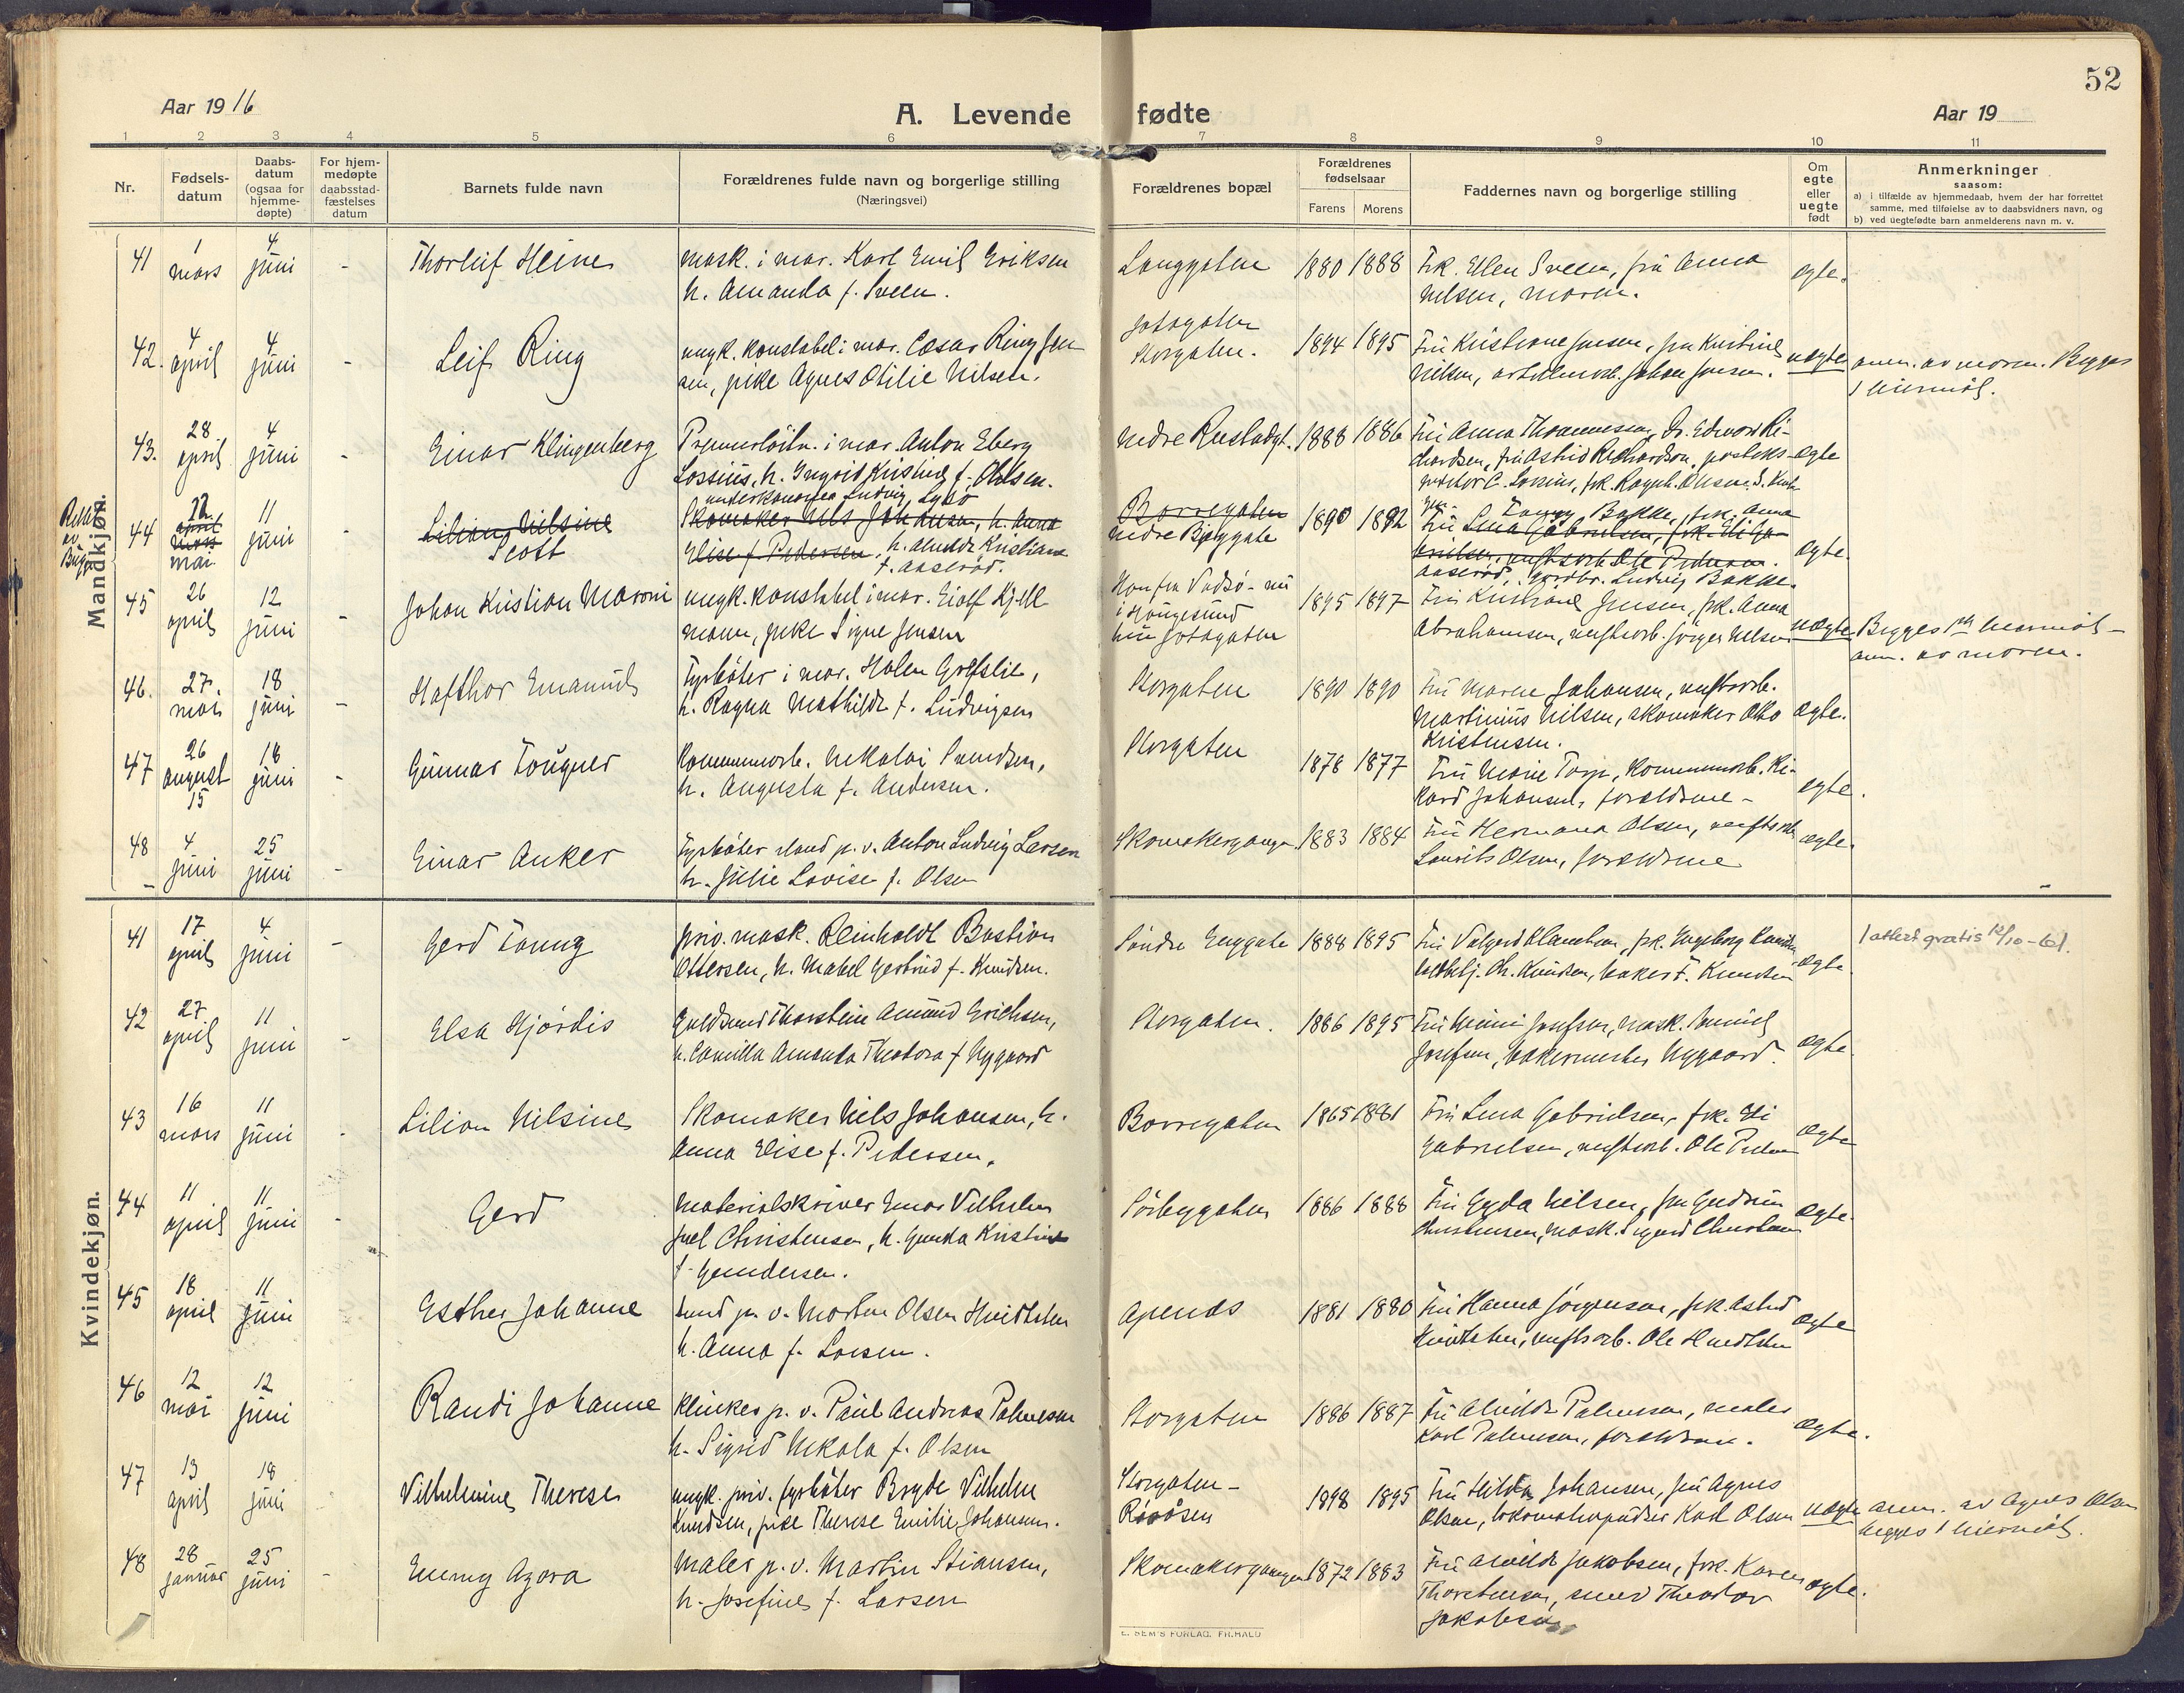 52
Aar 1916
A. Levende fødte
Aar 19
1 2 3 4 5 6 7 8 9 10 11
Nr.
Fødselsdatum
Daabsdatum (ogsaa for hjemmedøpte)
For hjemmedøpte daabsstadfæstelses datum
Barnets fulde navn
Forældrenes fulde navn og borgerlige stilling (Næringsvei)
Forældrenes bopæl
Forældrenes fødselsaar
Farens Morens
Faddernes navn og borgerlige stilling
Om egte eller uegte født
Anmerkninger
saasom:
a) i tilfælde av hjemmedaab, hvem der har forrettet samme, med tilføielse av to daabsvidners navn, og
b) ved uegtefødte barn anmelderens navn m. v.
Mandkjøn.
41 1 mars 4 juni - Thorleif Heine mask. i mar. Karl Emil Eriksen Langgaten 1880 1888 Frk. Ellen Sveen, fru Anna egte.
h. Amanda f. Sveen. Nilsen, moren.
42. 4 april 4 juni - Leif Ring ungk. konstabel i mar. Cæsar Ring Jen Storgaten. 1894 1895 Fru Kristiane Jensen, fru Kristine uegte anm. av moren. Begges
sen, pike Agnes Otilie Nilsen. Nilsen, Johan Jensen. 1
43. 28 april 4 juni - Einar Klingenberg Premierløitn. i mar. Anton Eberg Nedre Rustadgt. 1888 1886 Fru Anna Thoannessen, Dr. Edward Ri-
Lossius, h. Ingrid Kristine f. Ohlsen. chardsen, fru Astrid Richardson, egte
C. Lossius, frk. Ragnh. Ohlsen
44 mai 11 juni - Lilian Nilsine Ludvig Lybø Borregaten 1890 1892 Fanny Bakke, frk. Anna
Scott Skomaker Nils Johansen, h. Anna Nedre Fru Lina Gabrielsen, frk. Eli Ga- egte
Elise f. Pedersen. h. Alvilde Kristiane brielsen, verftsarb. Ole Pedersen
f. Aaserød. Aaserød, Ludvig Bakke.
45 26 april 12 juni - Johan Kristian Maroni ungk. konstabel i mar. Eiolf Kjell Han fra Vadsø - nu 1895 1897 Fru Kristiane Jensen, frk. Anna
mann, pike Signe Jensen i Haugesund Abrahamsen, verftsarb. Jørgen Nilsen uegte Begges
anm. av moren.
46. 27. mai 18 juni - Hafthor Emanuel Fyrbøter i mar. Holen Grefslie, Storgaten 1890 1890 Fru Maren Johansen, verftsarb.
h. Ragna Mathilde f. Ludvigsen Martinius Nilsen, skomaker Otto egte.
Kristensen.
47 26 august 15 18 juni - Gunnar Fougner Kommunearb. Nikolai Svendsen, Storgaten 1878 1877 Fru Marie Torp, kommunearb. Ri-
h. Augusta f. Andersen. kard Johansen, forældrene - egte.
48 4 juni 25 juni - Einar Anker Fyrbøter stand p. v. Anton Ludvig Larsen Skomakergangen 1883 1884 Fru Hermana Olsen, verftsarb. egte.
h. Julie Lovise f. Olsen Laurits Olsen, forældrene
Kvindekjøn.
41 17 april 4 juni - Gerd Fanny priv. mask. Reinholdt Bastian Søndre Enggate 1888 1895 Fru Valgerd frk. Ingeborg Knudsen 1 attest gratis
Ottersen, h. Mabel Gertrud f. Knudsen. Ch. Knudsen, baker F. Knudsen egte
42 27 april 11 juni - Elsa Hjørdis Guldsmed Thorstein Amund Erichsen, Storgaten. 1886 1895 Fru Josefsen, mask. Samuel
h. Camilla Amanda Theodora f. Nygaard Josefsen, bakermester Nygaard. egte.
43 16 mars 11 juni - Lilian Nilsine Skomaker Nils Johansen, h. Borregaten 1865 1881 Fru Lina Gabrielsen, frk. Eli egte
Anna Elise f. Pedersen. Gabrielsen, verftsarb. Ole Pedersen
44 11 april 11 juni - Gerd Materialskriver Einar Vilhelm Sørbygaten 1886 1888 Fru Gyda Nilsen, fru Gudrun egte.
Juel Christensen, h. Gunda Kristine Christensen, mask. Sigurd Christensen
f. Gundersen.
45 18 april 11 juni Esther Johanne Stand p. v. Morten Olsen Hvidtsten Apenæs 1881 1880 Fru Hanna Jørgensen, frk. Astrid egte
h. Anna f. Larsen. Hvidtsten, verftsarb. Ole Hvidtsten
46 12 mai 12 juni Randi Johanne Klinker p. v. Paul Andreas Palmesen Storgaten 1886 1887 Fru Alvilde Palmesen, maler egte.
h. Sigrid Nikola f. Olsen Karl Palmesen, forældrene.
47 13 april 18 juni Vilhelmine Therese ungk. priv. fyrbøter Brynde Vilhelm Storgaten - 1898 1895 Fru Hilda Johansen, fru Agnes uegte anm. av Agnes Olsen
Knudsen, pike Therese Emilie Johansen. Røråsen Olsen, lokomotivpudser Karl Olsen begges 1
48 28 januar 25 juni - Emmy Agora Maler p. v. Martin Stiansen, Skomakergangen 1872 1883 Fru Alvilde Jakobsen, frk. Karen egte.
h. Josefine f. Larsen Thorstensen, smed Theodor
Jakobsen
E. SEM'S FORLAG, FR.HALD